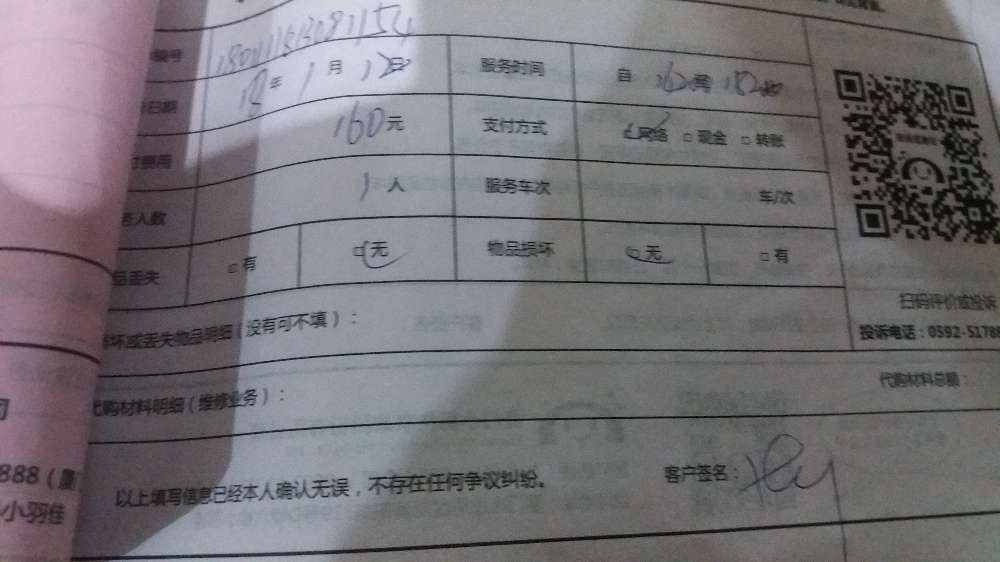 编号
18年1月12日 服务时间 自
日期
160元 支付方式 ☑网络 □现金 □转账
费用
1人 服务车次 车/次
务人数
品丢失 □有 ☑无 物品损坏 ☑无 □有
扫码评价或投诉
投诉电话:0592-51788
损坏或丢失物品明细(没有可不填):
代购材料明细(维修业务): 代购材料总额:
司
888(厦
小羽佳
以上填写信息已经本人确认无误,不存在任何争议纠纷。 客户签名: